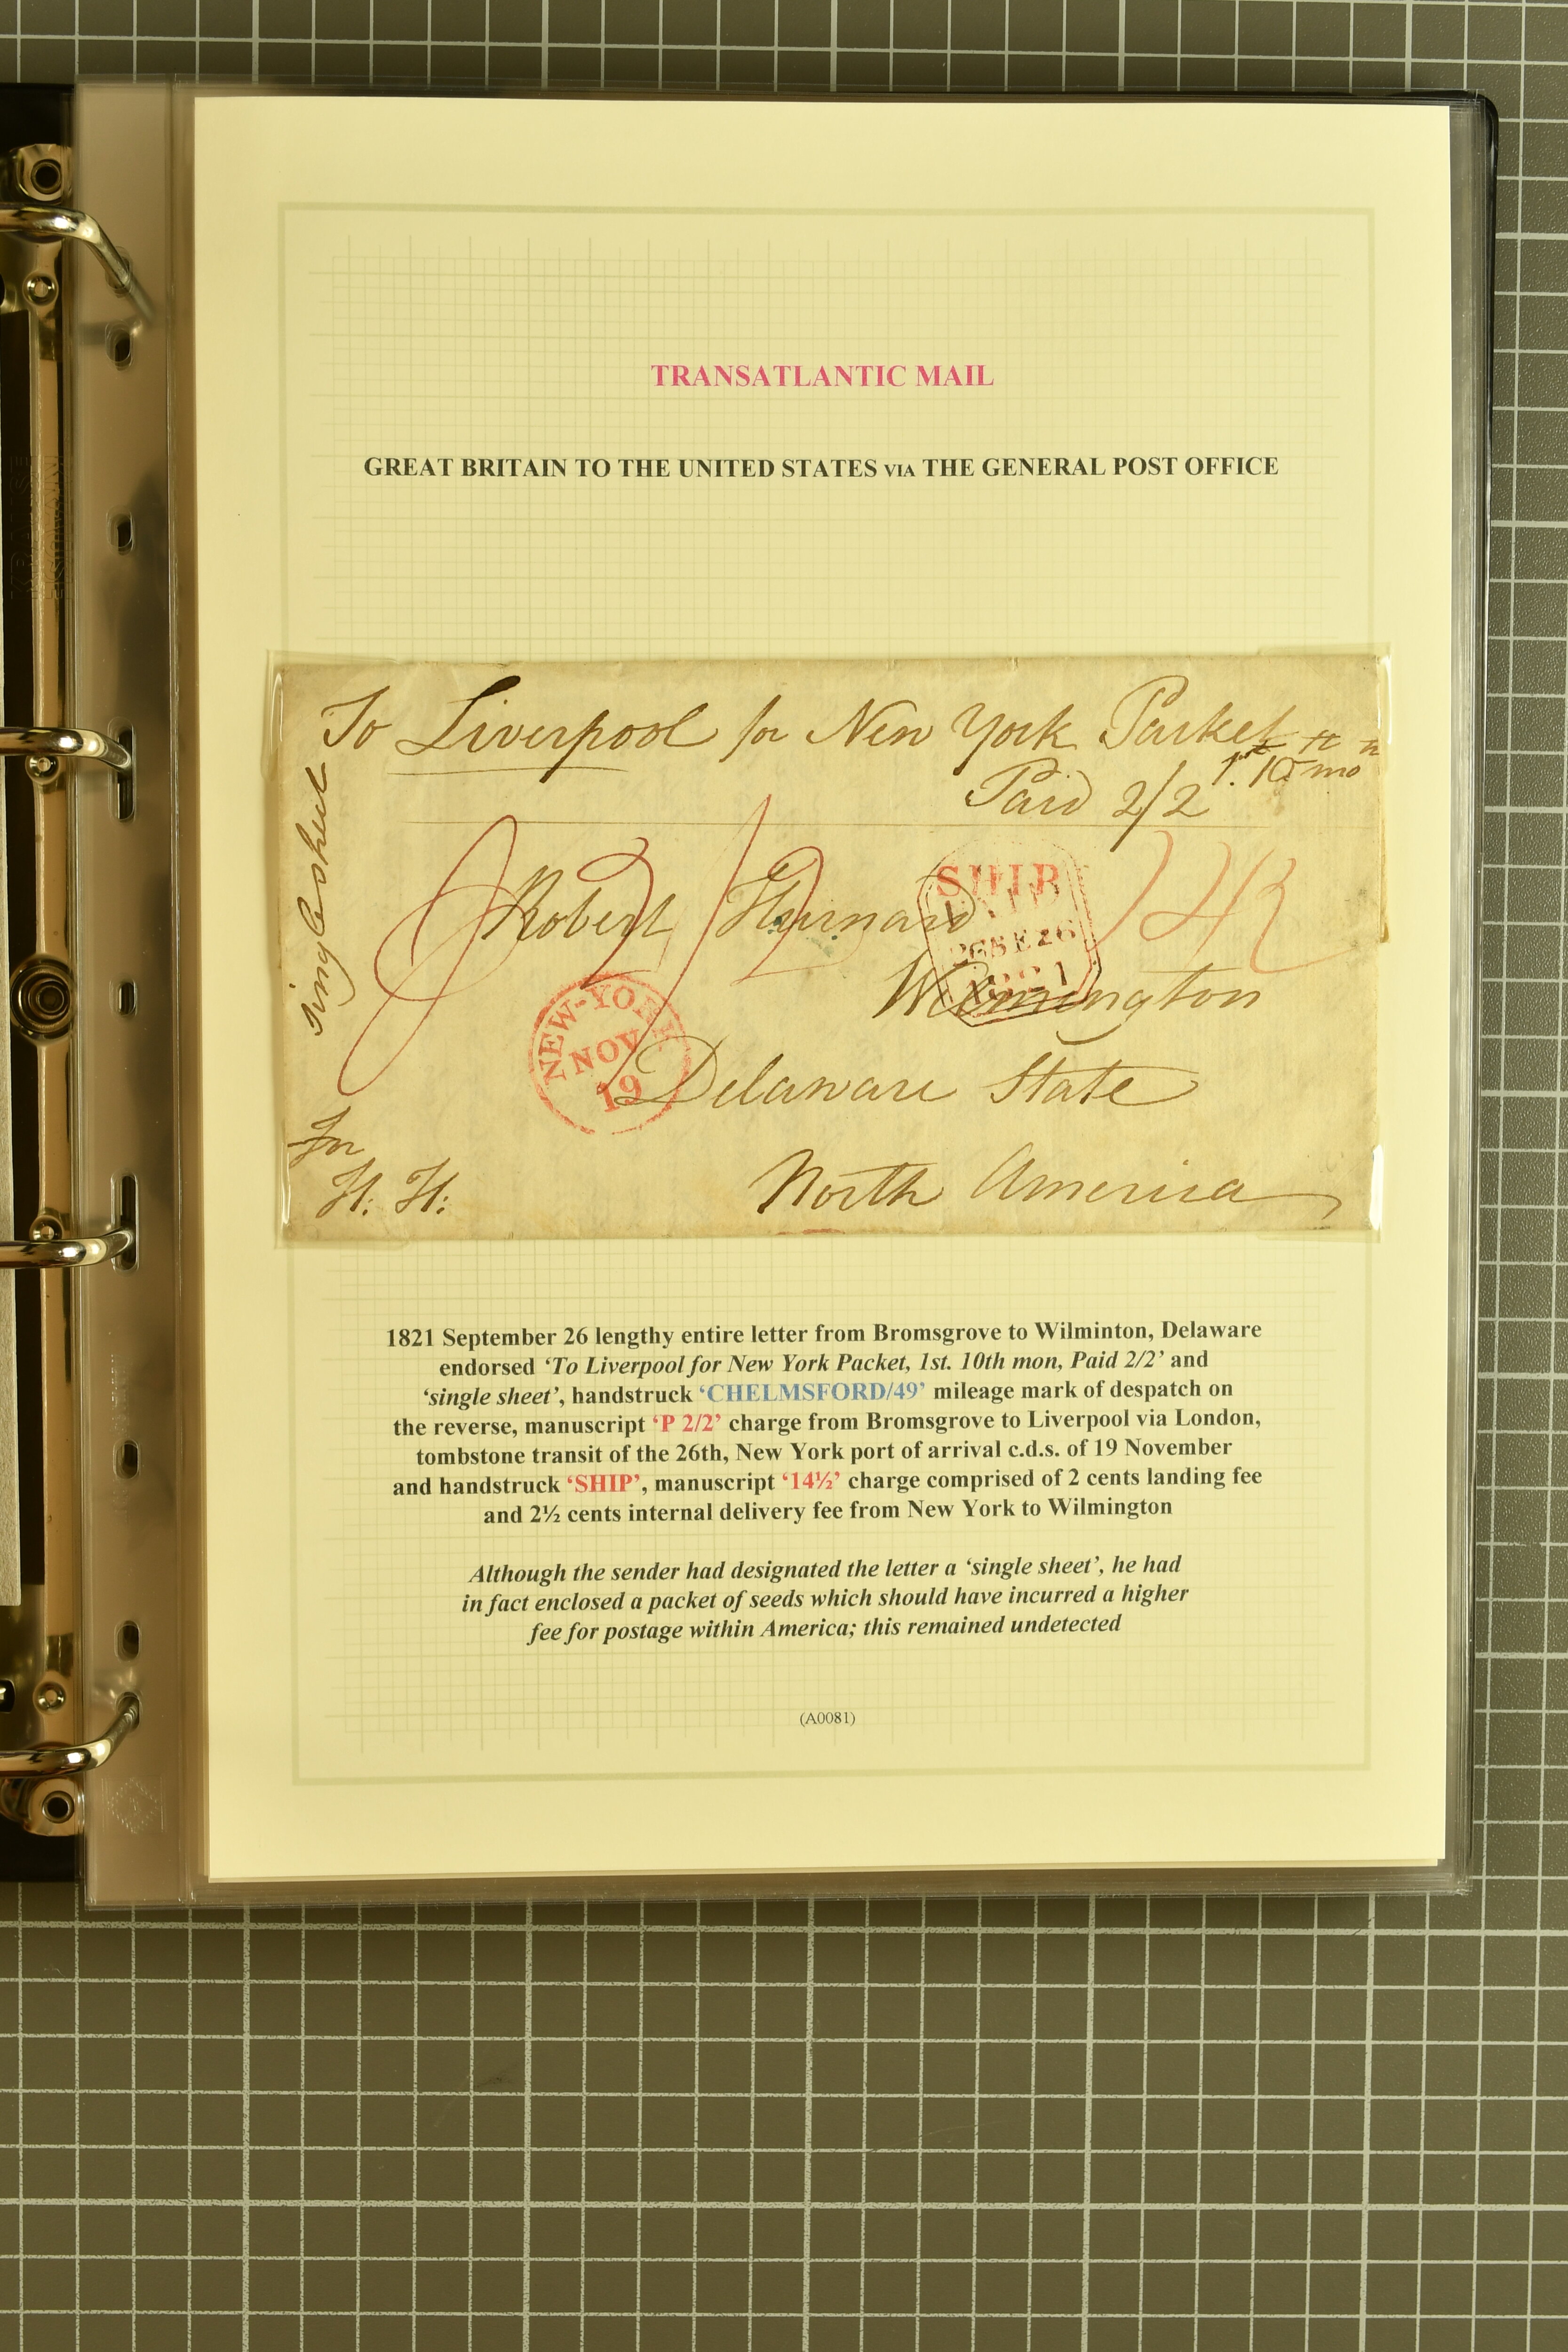 TRANSATLANTIC MAIL
GREAT BRITAIN TO THE UNITED STATES VIA THE GENERAL POST OFFICE
To Liverpool for New York Packet
1st. 10th mo
Paid 2/2
single sheet
P 2/2
Robert Hurnard
SHIP
26 SE 26
1821
14½
Wilmington
NEW-YORK
NOV
19
Delaware State
For
H: H:
North America
1821 September 26 lengthy entire letter from Bromsgrove to Wilminton, Delaware
endorsed ‘To Liverpool for New York Packet, 1st. 10th mon, Paid 2/2’ and
‘single sheet’, handstruck ‘CHELMSFORD/49’ mileage mark of despatch on
the reverse, manuscript ‘P 2/2’ charge from Bromsgrove to Liverpool via London,
tombstone transit of the 26th, New York port of arrival c.d.s. of 19 November
and handstruck ‘SHIP’, manuscript ‘14½’ charge comprised of 2 cents landing fee
and 2½ cents internal delivery fee from New York to Wilmington
Although the sender had designated the letter a ‘single sheet’, he had
in fact enclosed a packet of seeds which should have incurred a higher
fee for postage within America; this remained undetected
(A0081)